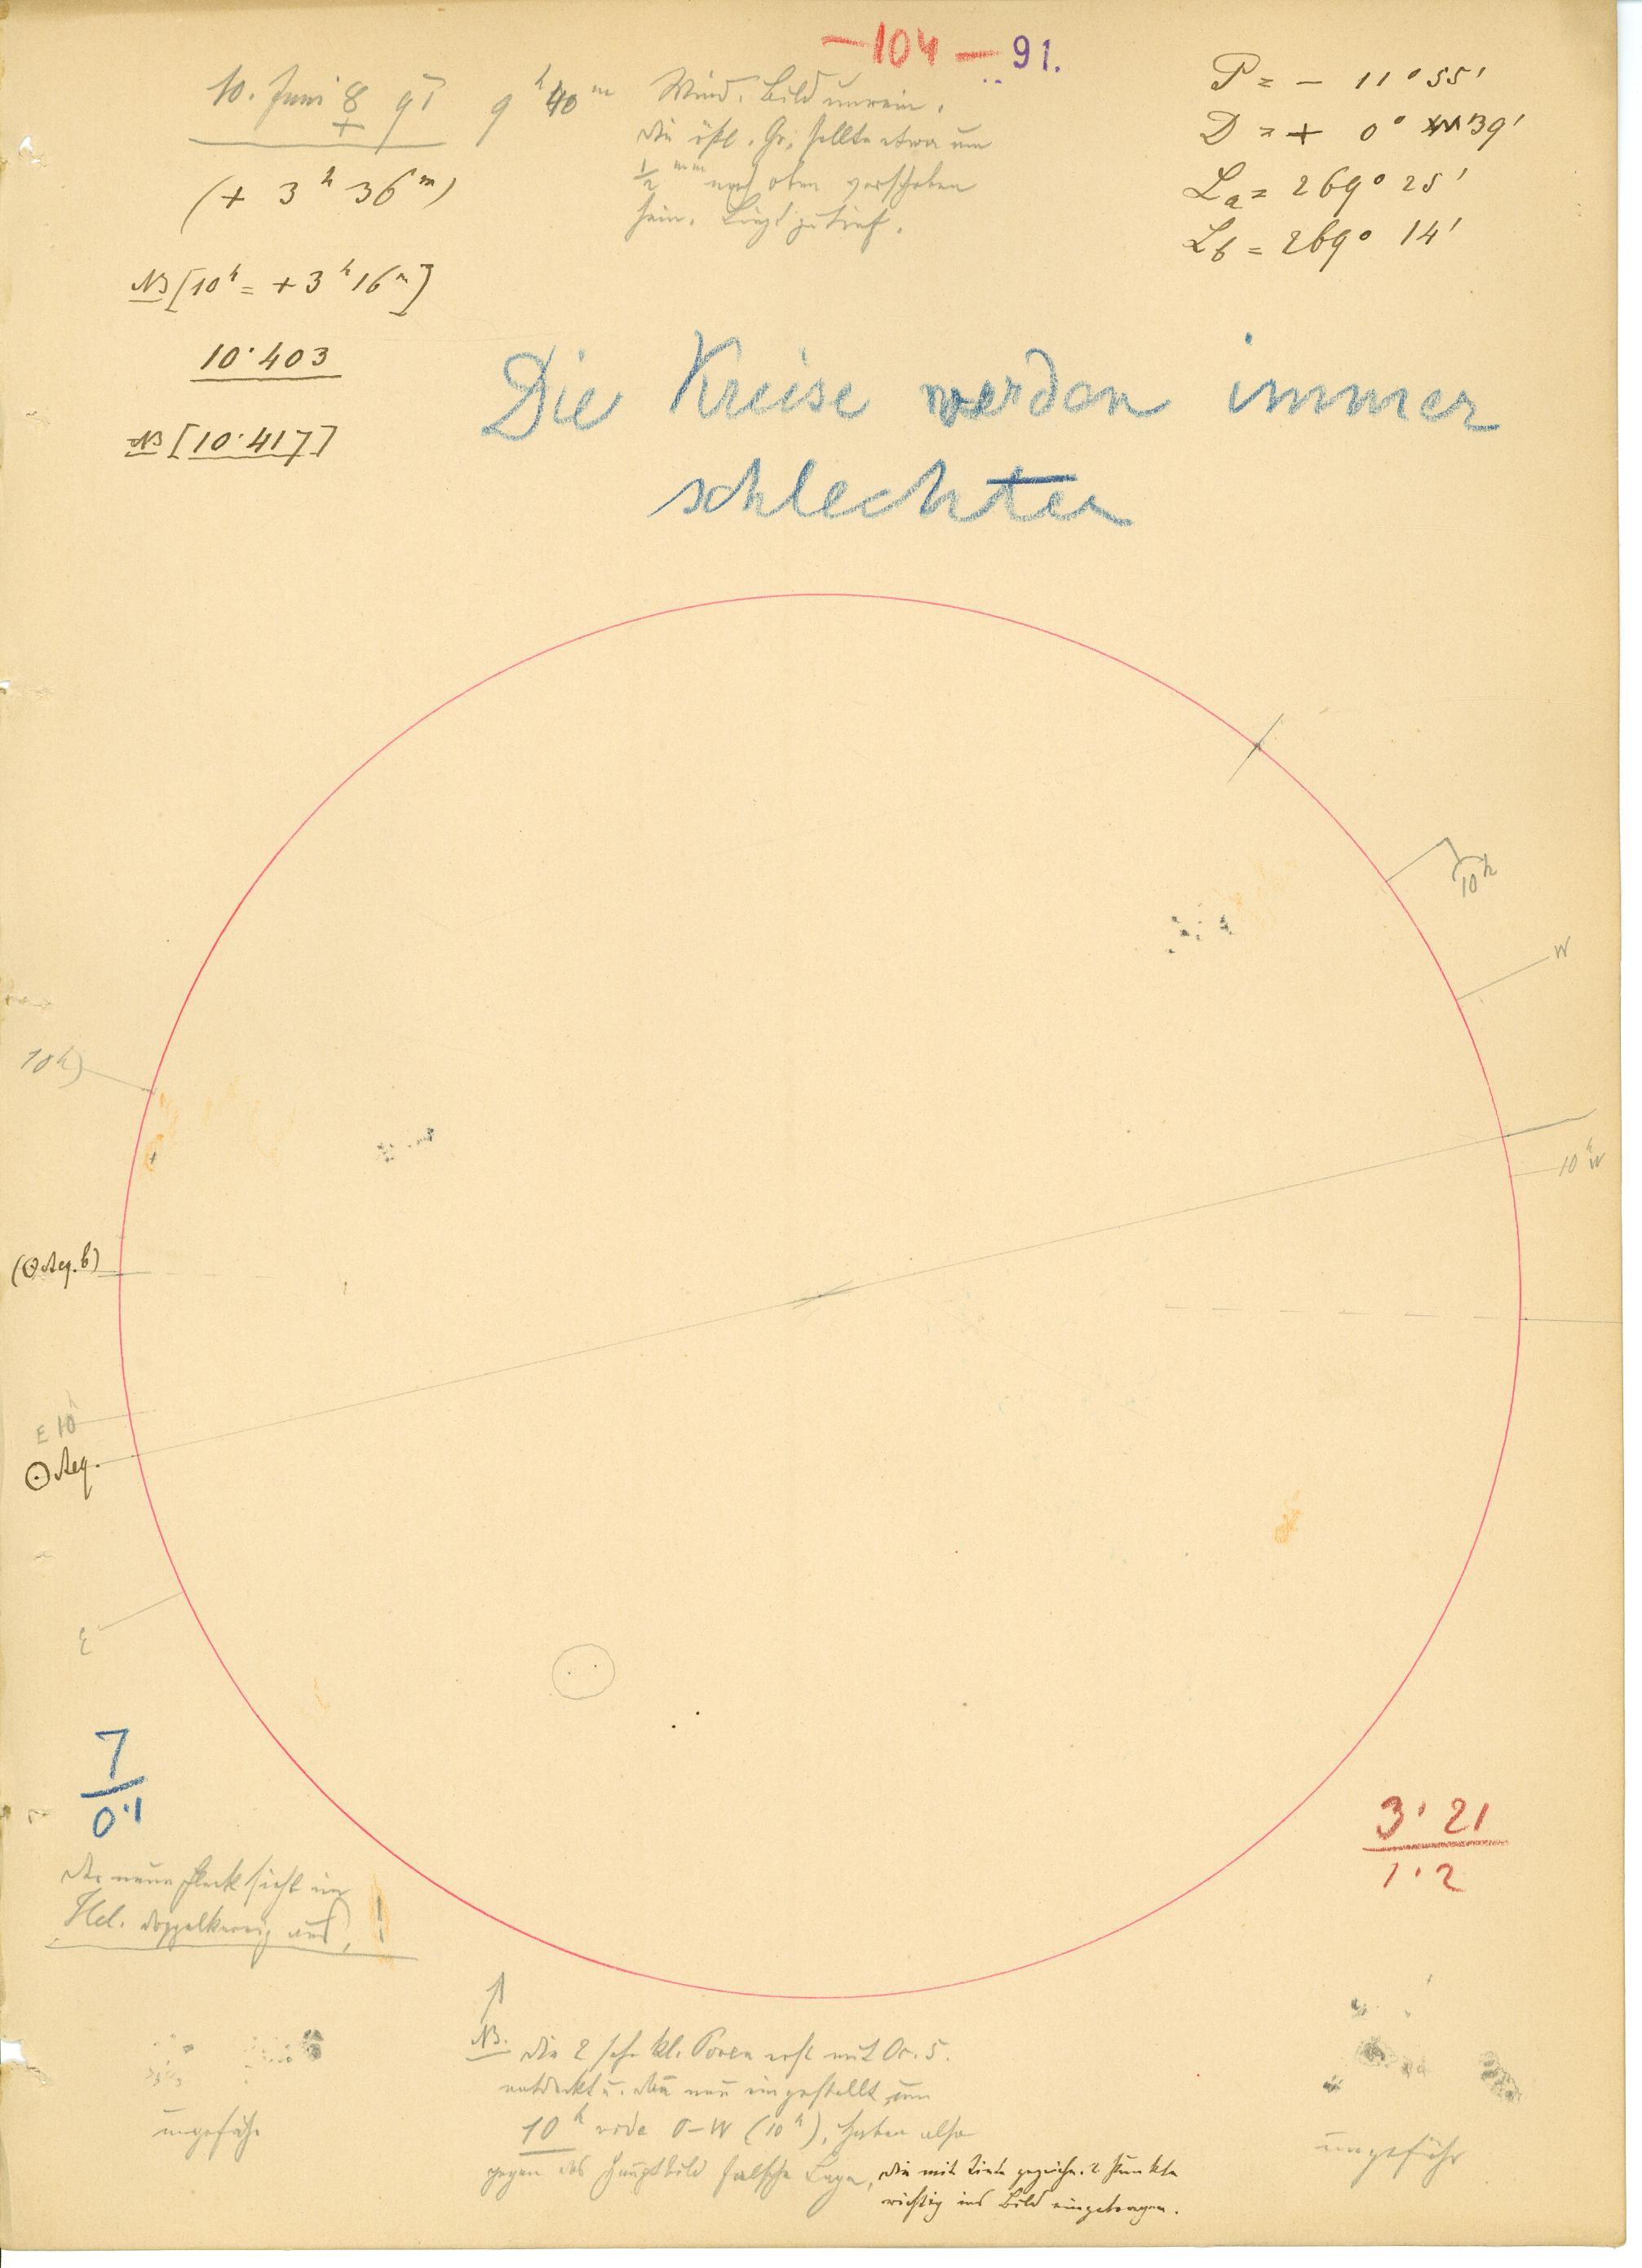 – 104 – 91.
10. Juni ♀ 91 9ʰ 40ᵐ
(+ 3ʰ 36ᵐ)
NB [10ʰ = + 3ʰ 16ᵐ]
10·403
NB [10·417]
Wind. Bild unrein.
Die östl. Gr. sollte etwa um
½ ᵐᵐ nach oben verschoben
sein. Liegt zu tief.
P = – 11° 55'
D = + 0° 39'
Lₐ = 269° 25'
L_b = 269° 14'
Die Kreise werden immer
schlechter
10ʰ
W
10ʰ)
10ʰ W
(☉ Aeq. b)
E 10ʰ
☉ Aeq.
E
7
0·1
3·21
1·2
Der neue Fleck sieht im
Hel. doppelkernig aus, !
NB. Die 2 sehr kl. Poren erst mit Oc. 5.
entdeckt u. neu eingestellt, um
10ʰ O–W (10ʰ), haben also
gegen das Hauptbild falsche Lage, die mit Tinte gezeichn. 2 Punkte
richtig ins Bild eingetragen.
ungefähr
ungefähr